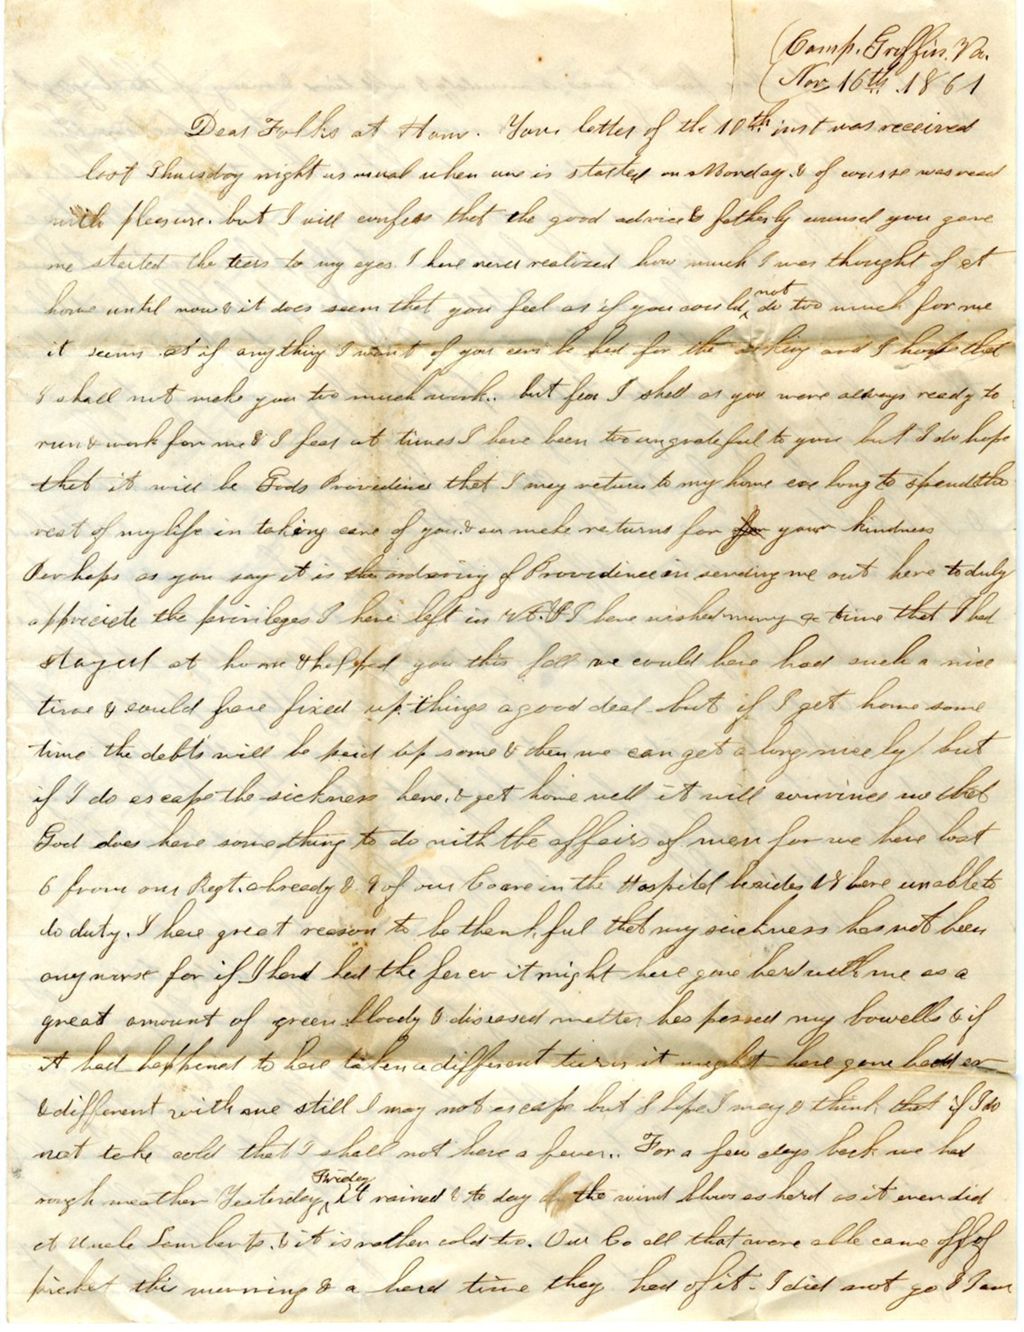 Camp. Griffin. Va.
Nov 16th. 1861
Dear Folks at Home. Your letter of the 10th. inst was received
last Thursday night as usual when one is started on Monday. & of course was read
with pleasure. but I will confess that the good advice & fatherly counsel you gave
me started the tears to my eyes. I have never realized how much I was thought of at
home until now & it does seem that you feel as if you could not do too much for me
it seems as if anything I want of you can be had for the asking and I hope that
I shall not make you too much work.. but fear I shall as you were always ready to
run & work for me & I fear at times I have been too ungrateful to you but I do hope
that it will be Gods Providence that I may return to my home ere long to spend the
rest of my life in taking care of you & so make returns for for your kindness
Perhaps as you say it is the ordering of Providence in sending me out here to duly
appriciate the privileges I have left in Vt. & I have wished many a time that I had
stayed at home & helped you this fall we could have had such a nice
time & could have fixed up things a good deal but if I get home some
time the debts will be paid up some & then we can get along nicely / but
if I do escape the sickness here. & get home well it will convince me that
God does have something to do with the affairs of men for we have lost
6 from our Regt. already & of our Co are in the Hospital besides 18 here unable to
do duty. I have great reason to be thankful that my sickness has not been
any worse for if I had had the fever it might have gone hard with me as a
great amount of green bloody & diseased matter has passed my bowells & if
it had happened to have taken a different turn it might have gone harder
& different with me still I may not escape but I hope I may & think that if I do
not take cold that I shall not have a fever.. For a few days back we had
rough weather Yesterday, Friday it rained & to day the wind blows as hard as it ever did
at Uncle Lamberts. & it is rather cold too. Our Co all that were able came off of
picket this morning & a hard time they had of it. I did not go & I am